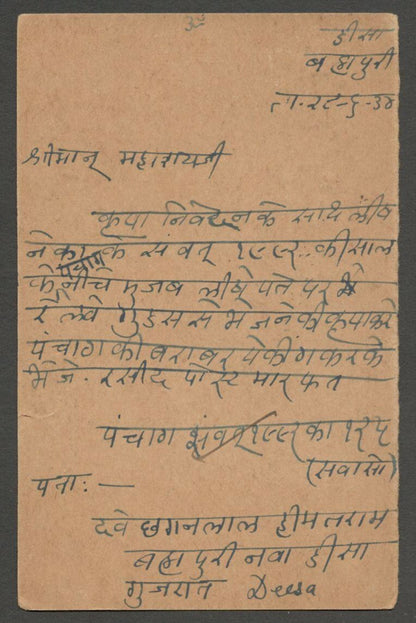 ॐ
डीसा
बह्मपुरी
ता. २८-६-३४
श्रीमान् महाशयजी
कृपा निवेदन के साथ लीष
ने का के संवत् १९९२ की साल
के पंचाग नीचे मुजब लीषे पते पर
रेलवे गुडस से भेजने की कृपा करे
पंचाग की बराबर पेकींग करके
भेजे. रसीद पोस्ट मारफत
पंचाग संवत् १९९२ का १२५
(सवासो)
पता: —
दवे छगनलाल हीमतराम
बह्मपुरी नवा डीसा
गुजरात Deesa